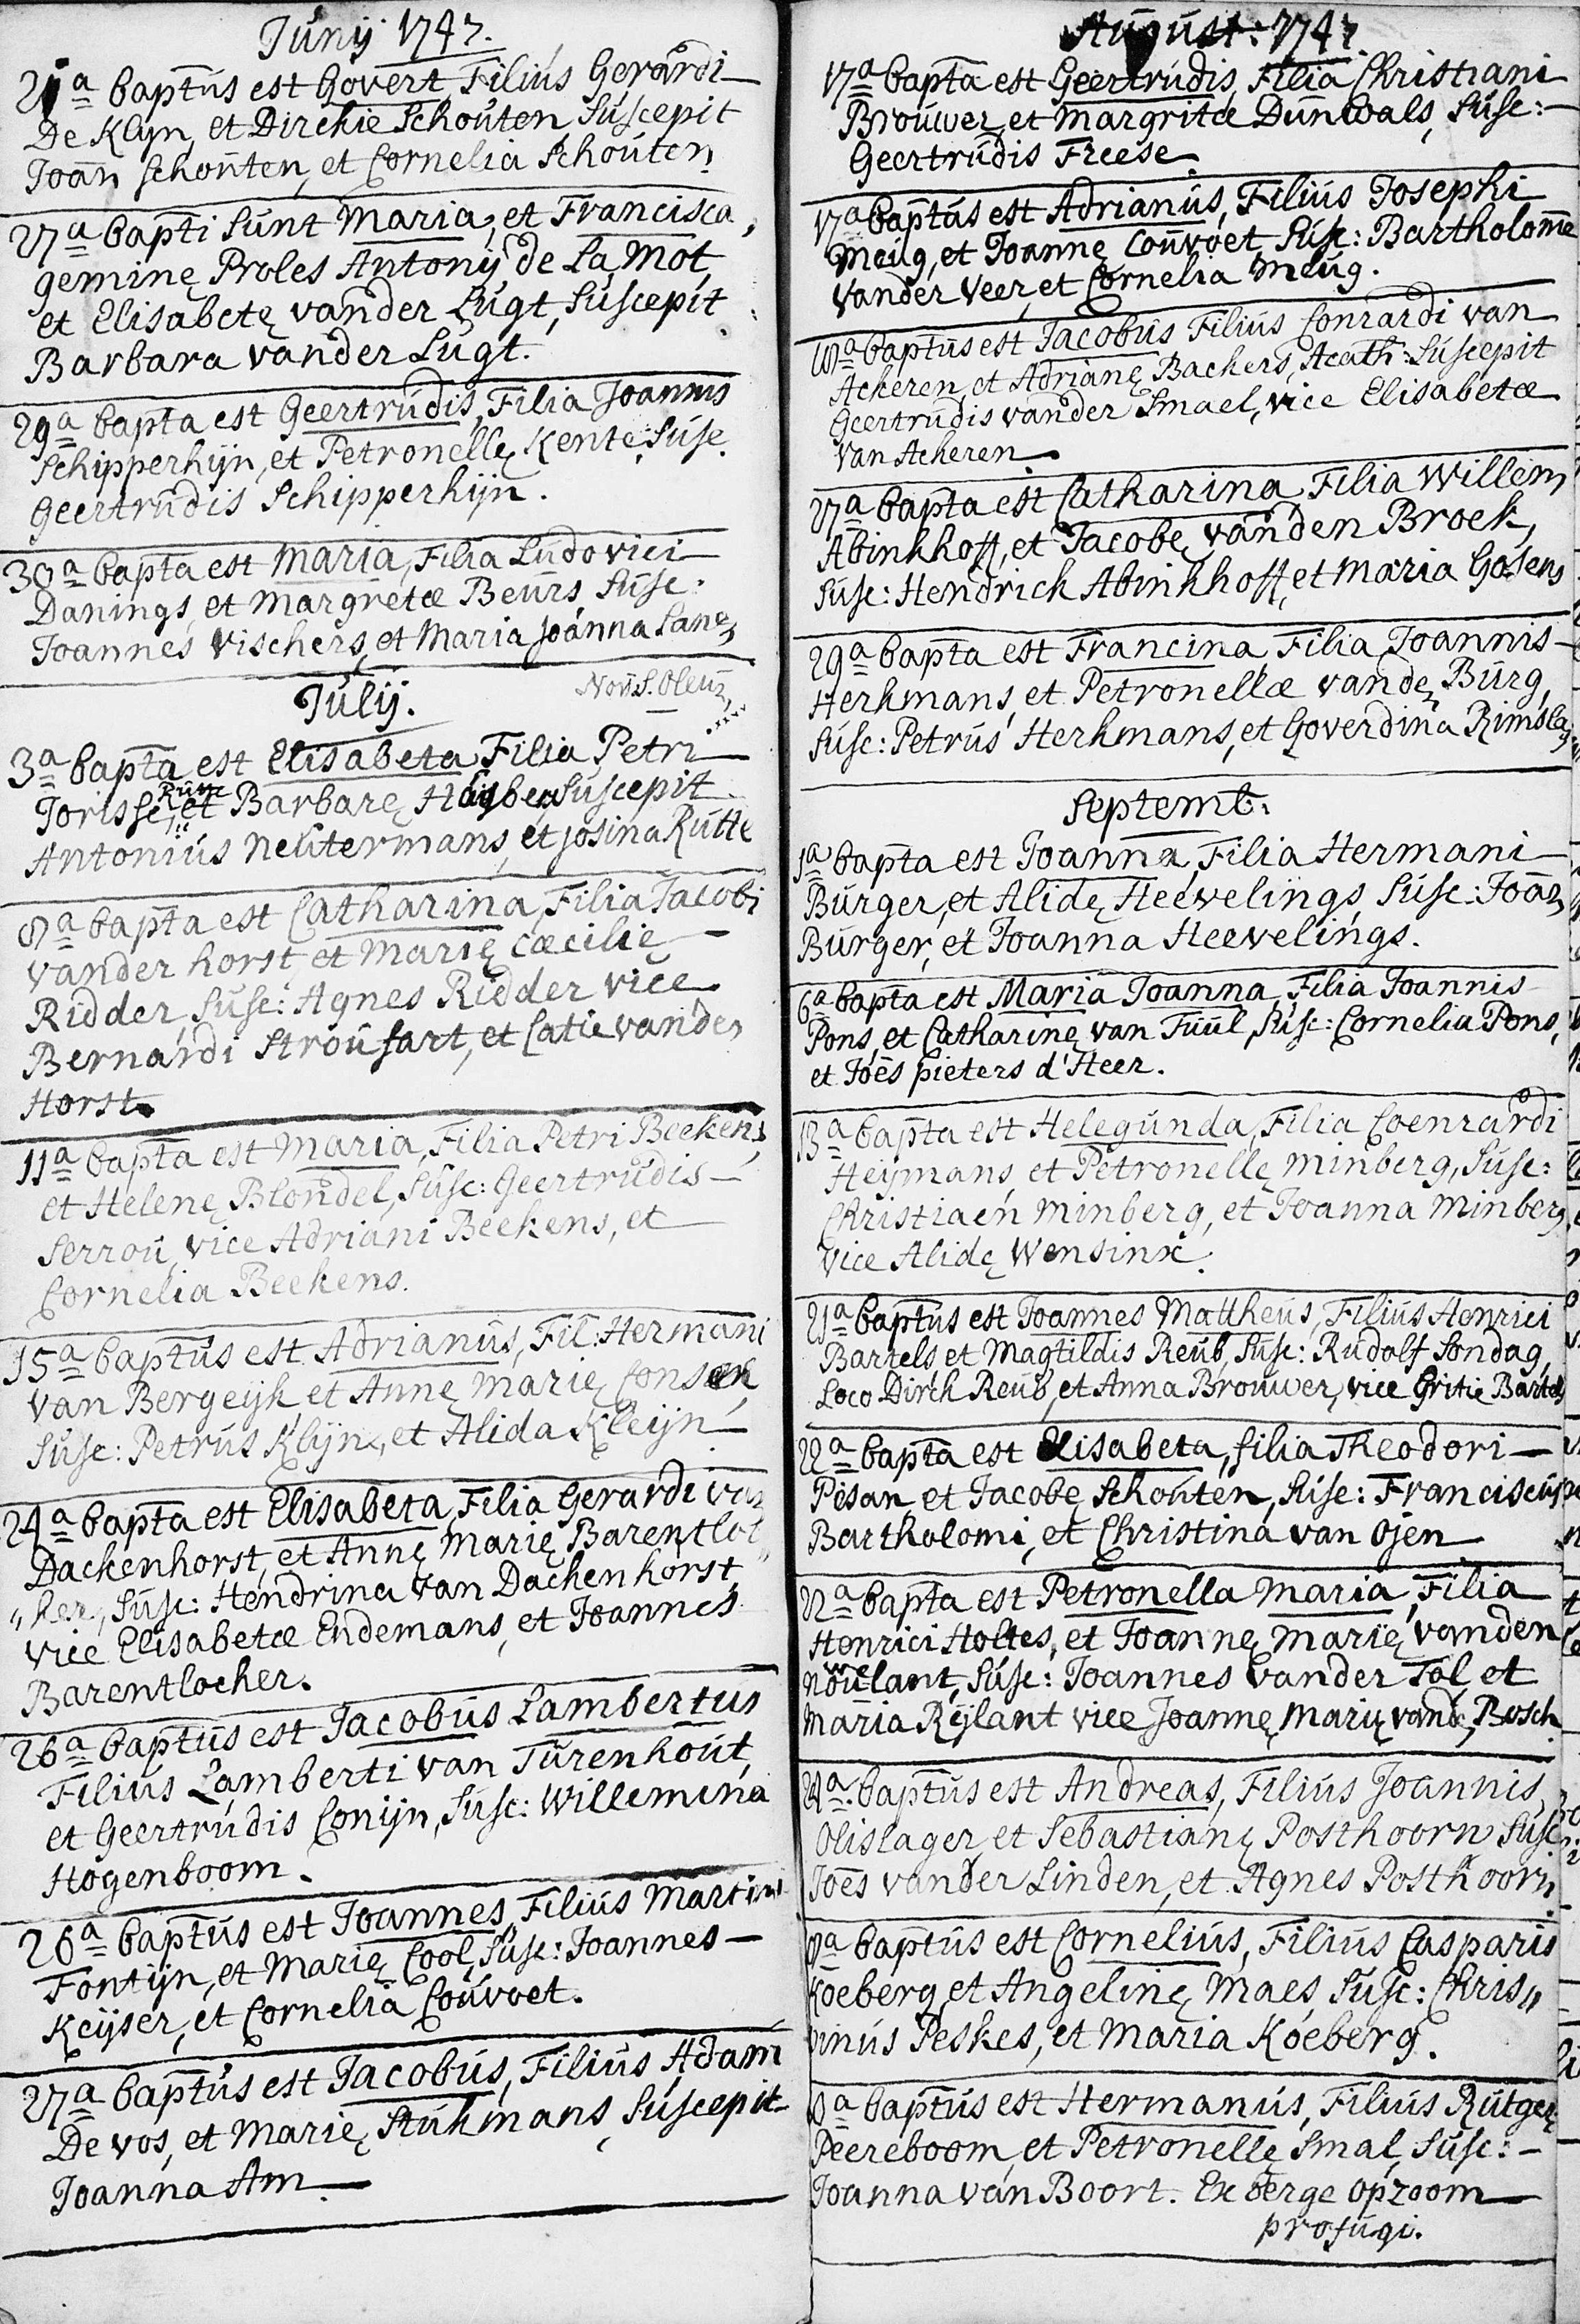 Junij 1747.
21a baptus est Govert Filius Gerardi
De Klijn, et Dirckie Schouten, Suscepit
Joan Schouten, et Cornelia Schouten.
27a bapti sunt Maria, et Francisca,
geminę Proles Antonij de La Mot,
et Elisabetę vander Lugt, Suscepit
Barbara vander Lugt.
29a bapta est Geertrudis, Filia Joannis
Schipperhijn, et Petronellę Kente, Susc.
Geertrudis Schipperhijn.
30a bapta est Maria, Filia Ludovici
Danings, et Margretæ Beurs Susc:
Joannes Vischers, et Maria Joanna Lane,
Julij.
3a bapta est Elisabeta Filia Petri
Jorisse, et Barbarę Suscepit
Antonius Neutermans, et Josina Rutte
8a bapta est Catharina, Filia Jacobi
vander horst, et Marię Cæcilię
Ridder, Susc: Agnes Ridder vice
Bernardi Stroufart, et Catie vander
Horst.
11a bapta est Maria, Filia Petri Beekens,
et Helenę Blondel, Susc: Geertrudis
Serrou, vice Adriani Beekens, et
Cornelia Beekens.
15a baptus est Adrianus, Fil: Hermani
van Bergeijk et Annę Marię
Susc: Petrus Klijn, et Alida Kleijn
24a bapta est Elisabeta, Filia Gerardi van
Dackenhorst, et Annę Marię Barentlo
"ker, Susc: Hendrina van Dackenhorst,
vice Elisabetæ Endemans, et Joannes
Barentlocher.
26a baptus est Jacobus Lambertus
Filius Lamberti van Turenhout,
et Geertrudis Conijn, Susc: Willemina
Hogenboom.
26a baptus est Joannes, Filius Martini
Fontijn, et Marię Cool, Susc: Joannes
Keijser, et Cornelia Couvoet.
27a baptus est Jacobus, Filius Adam
De vos, et Marię Stukmans, Suscepit
Joanna Am
August: 1747
17a bapta est Geertrudis, Filia Christiani
Brouwer, et Margritæ Dunwals, Susc:
Geertrudis Freese.
17a baptus est Adrianus, Filius Josephi
Meug, et Joannę Couvoet, Susc: Bartholome
vander Veer, et Cornelia Meug.
18a baptus est Jacobus Filius Conrardi van
Ackeren, et Adrianę Backers, Acath: Suscepit
Geertrudis vander Smael, vice Elisabetæ
van Ackeren.
27a bapta est Catharina, Filia Willem
Abinkhoff, et Jacobę vanden Broek,
Susc: Hendrick Abinkhoff, et Maria Gosens
29a bapta est Francina, Filia Joannis
Herkmans, et Petronellæ vander Burg,
Susc: Petrus Herkmans, et Goverdina
Septemb:
1a bapta est Joanna, Filia Hermani
Burger, et Alidę Heevelings, Susc: Joan
Burger, et Joanna Heevelings.
6a bapta est Maria Joanna, Filia Joannis
Pons, et Catharinę van Tuul, Susc: Cornelia Pons,
et Joes pieters d'Heer.
13a bapta est Helegunda, Filia Coenrardi
Heijmans, et Petronellę Minberg, Susc:
Christiaen Minberg, et Joanna Minberg
vice Alidę Wensinx.
21a baptus est Joannes Mattheus, Filius Henrici
Bartels et Magtildis Reub, Susc: Rudolf Sondag,
Loco Dirck Reub, et Anna Brouwer, vice Gritie Bartels
22a bapta est Elisabeta, filia Theodori
Pisan et Jacobę Schouten, Susc: Franciscus
Bartholomi, et Christina van Ojen
22a bapta est Petronella Maria, Filia
Henrici Holtes, et Joannę Marię vanden
Susc: Joannes vander Tol et
Maria Rijlant vice Joannę Marię vanden Bosch
24a baptus est Andreas, Filius Joannis
Olislager, et Sebastianę Posthoorn Susc
Joes vander Linden, et Agnes Posthoorn.
8a baptus est Cornelius, Filius Casparis
Koeberg, et Angelinę Maes, Susc: Chris"
vinus Peskes, et Maria Koeberg.
8a baptus est Hermanus, Filius Rutgeri
Peereboom, et Petronellę Smal, Susc:
Joanna van Boort. Ex berge opzoom
profugi.